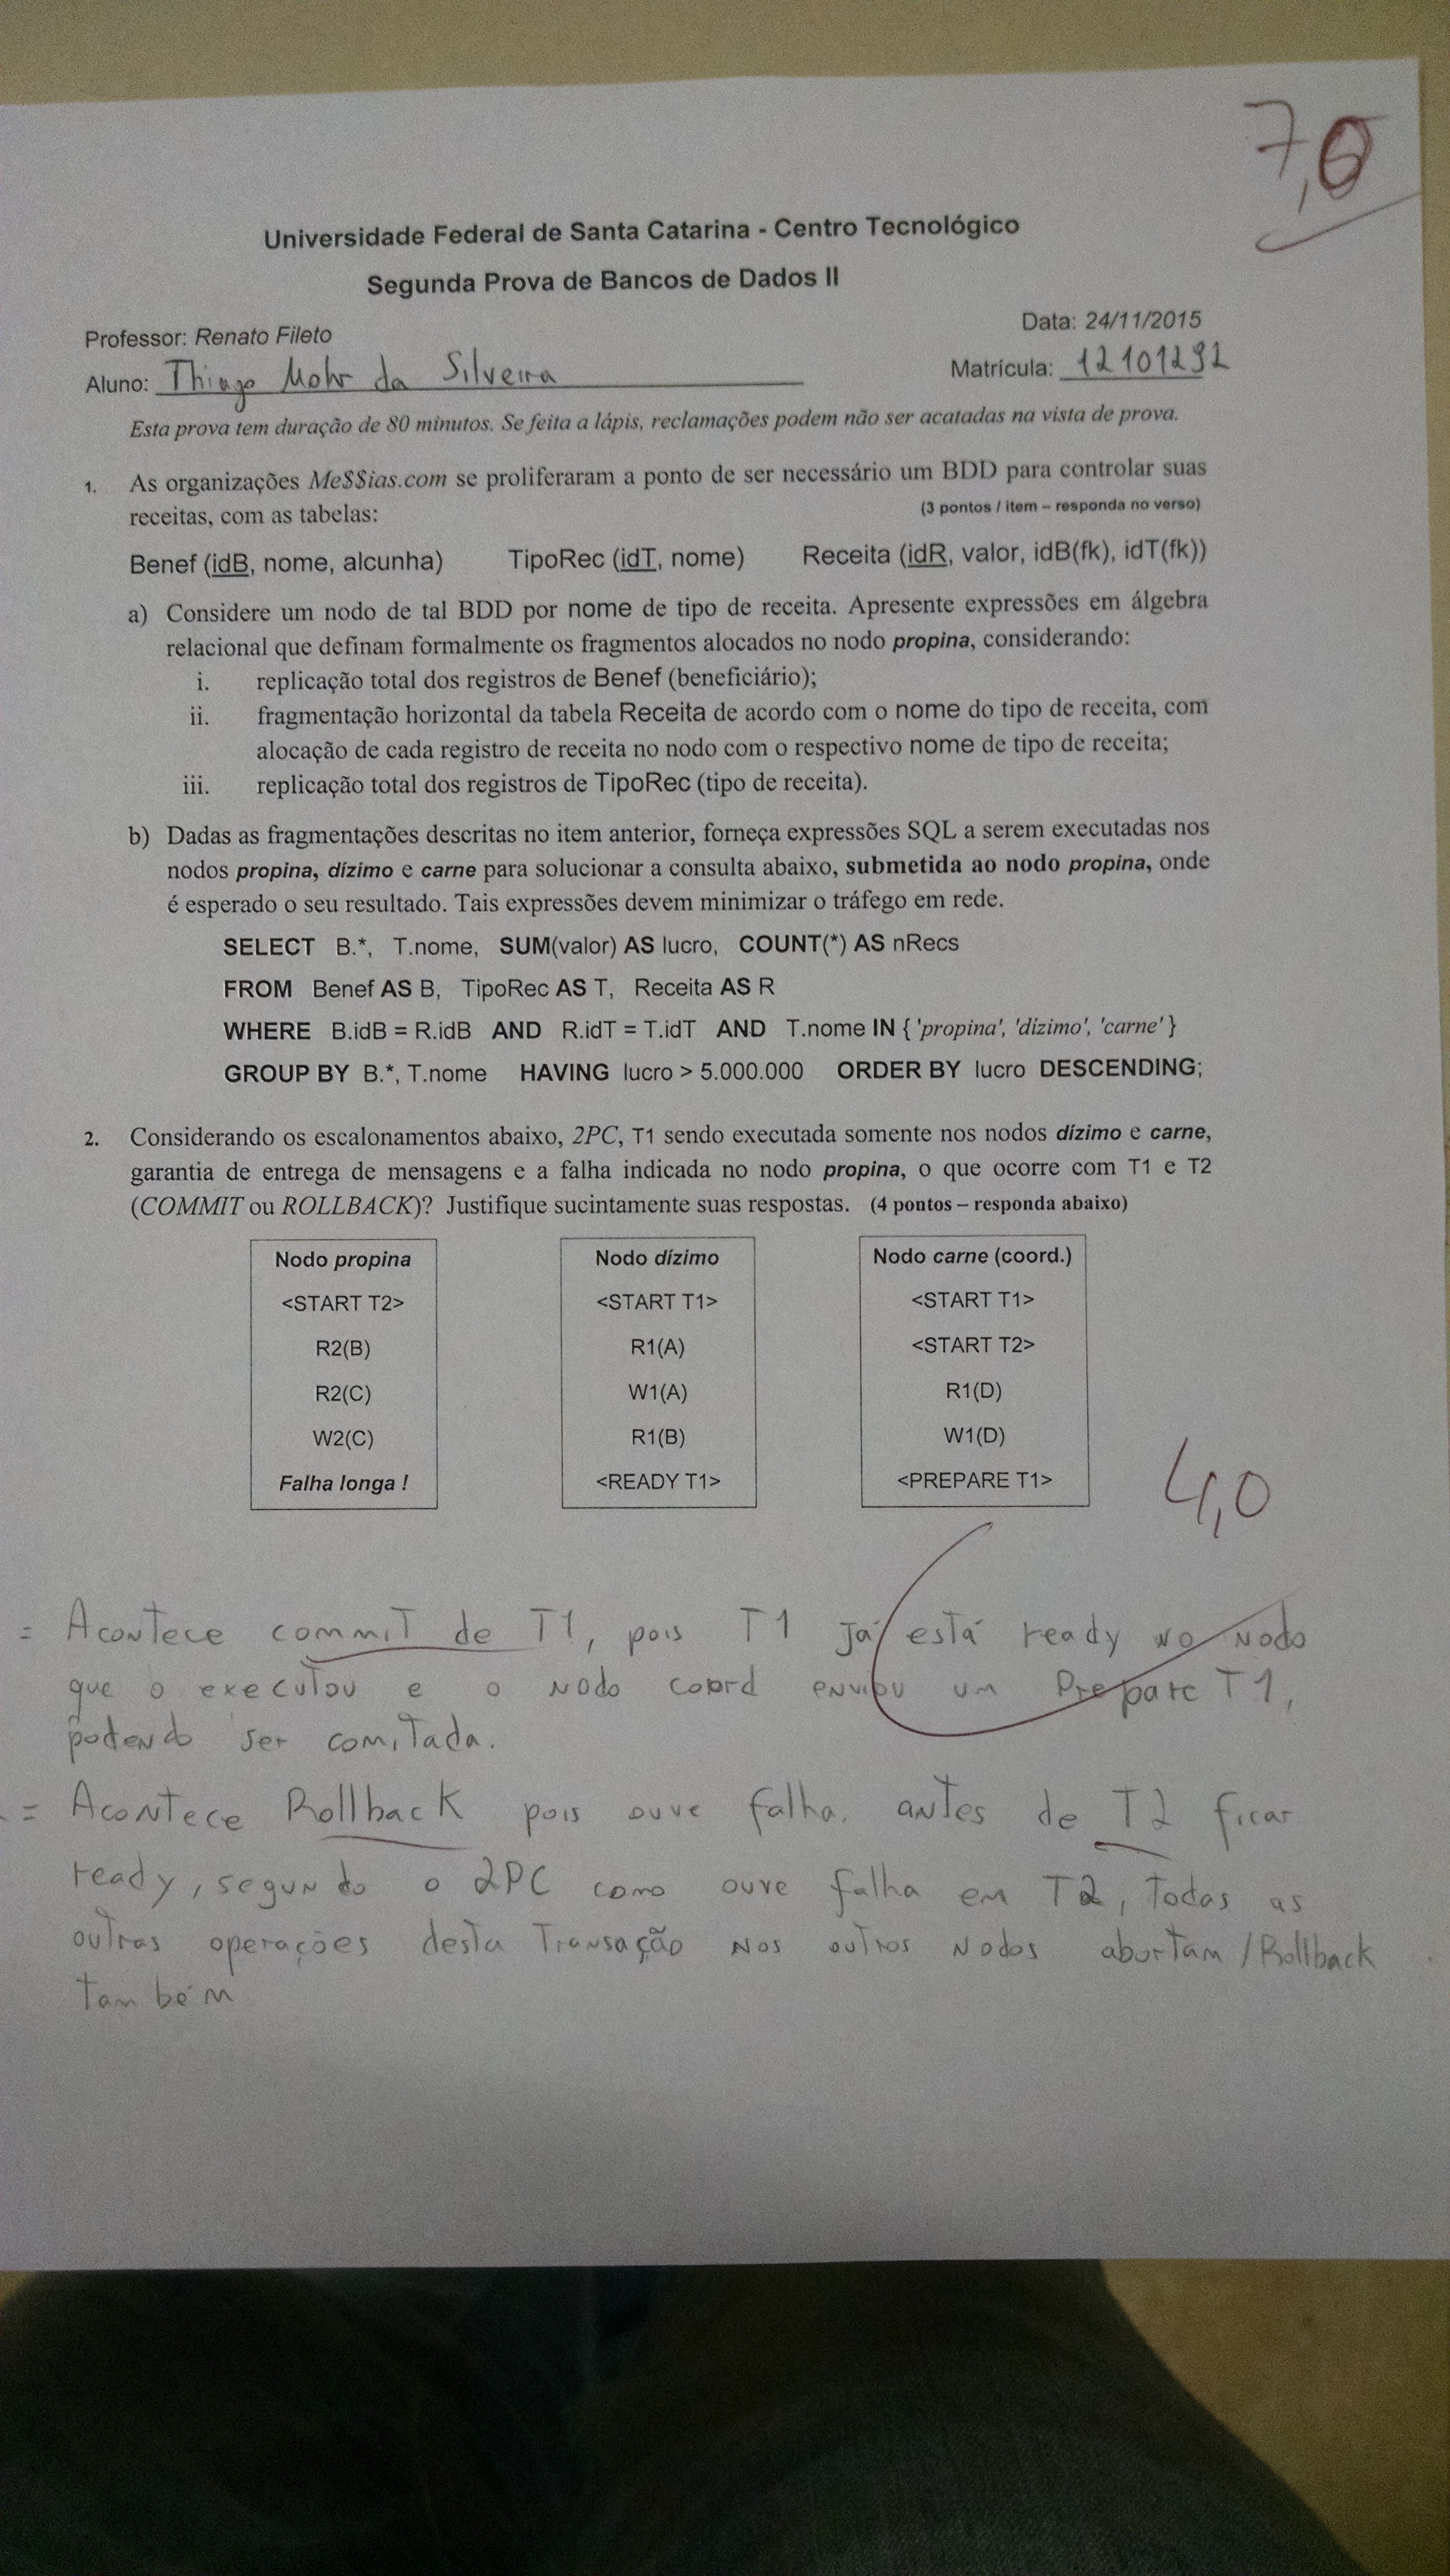 7,6
Universidade Federal de Santa Catarina - Centro Tecnológico
Segunda Prova de Bancos de Dados II
Professor: Renato Fileto
Data: 24/11/2015
Aluno: Thiago Mohr da Silveira
Matrícula: 12101292
Esta prova tem duração de 80 minutos. Se feita a lápis, reclamações podem não ser acatadas na vista de prova.
1. As organizações Me$$ias.com se proliferaram a ponto de ser necessário um BDD para controlar suas
receitas, com as tabelas: (3 pontos / item – responda no verso)
Benef (idB, nome, alcunha) TipoRec (idT, nome) Receita (idR, valor, idB(fk), idT(fk))
a) Considere um nodo de tal BDD por nome de tipo de receita. Apresente expressões em álgebra
relacional que definam formalmente os fragmentos alocados no nodo propina, considerando:
i. replicação total dos registros de Benef (beneficiário);
ii. fragmentação horizontal da tabela Receita de acordo com o nome do tipo de receita, com
alocação de cada registro de receita no nodo com o respectivo nome de tipo de receita;
iii. replicação total dos registros de TipoRec (tipo de receita).
b) Dadas as fragmentações descritas no item anterior, forneça expressões SQL a serem executadas nos
nodos propina, dízimo e carne para solucionar a consulta abaixo, submetida ao nodo propina, onde
é esperado o seu resultado. Tais expressões devem minimizar o tráfego em rede.
SELECT B.*, T.nome, SUM(valor) AS lucro, COUNT(*) AS nRecs
FROM Benef AS B, TipoRec AS T, Receita AS R
WHERE B.idB = R.idB AND R.idT = T.idT AND T.nome IN { 'propina', 'dízimo', 'carne' }
GROUP BY B.*, T.nome HAVING lucro > 5.000.000 ORDER BY lucro DESCENDING;
2. Considerando os escalonamentos abaixo, 2PC, T1 sendo executada somente nos nodos dízimo e carne,
garantia de entrega de mensagens e a falha indicada no nodo propina, o que ocorre com T1 e T2
(COMMIT ou ROLLBACK)? Justifique sucintamente suas respostas. (4 pontos – responda abaixo)
Nodo propina
<START T2>
R2(B)
R2(C)
W2(C)
Falha longa !
Nodo dízimo
<START T1>
R1(A)
W1(A)
R1(B)
<READY T1>
Nodo carne (coord.)
<START T1>
<START T2>
R1(D)
W1(D)
<PREPARE T1>
4,0
= Acontece commit de T1, pois T1 já está ready no nodo
que o executou e o nodo coord enviou um Prepare T1,
podendo ser comitada.
= Acontece Rollback pois ouve falha. antes de T2 ficar
ready, segundo o 2PC como ouve falha em T2, todas as
outras operações desta transação nos outros nodos abortam/Rollback
também